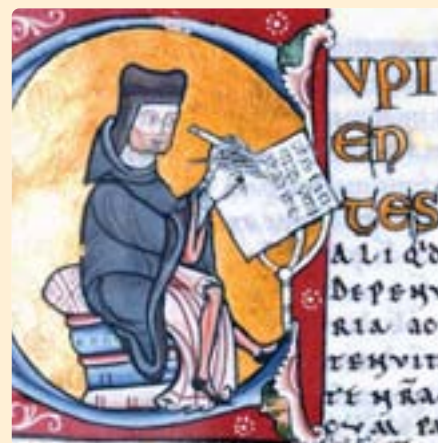 CVPI
EN
TES
ALIQ'D
DEPENV
RIA AC
TENVIT
TE N̄RA
CVM PA